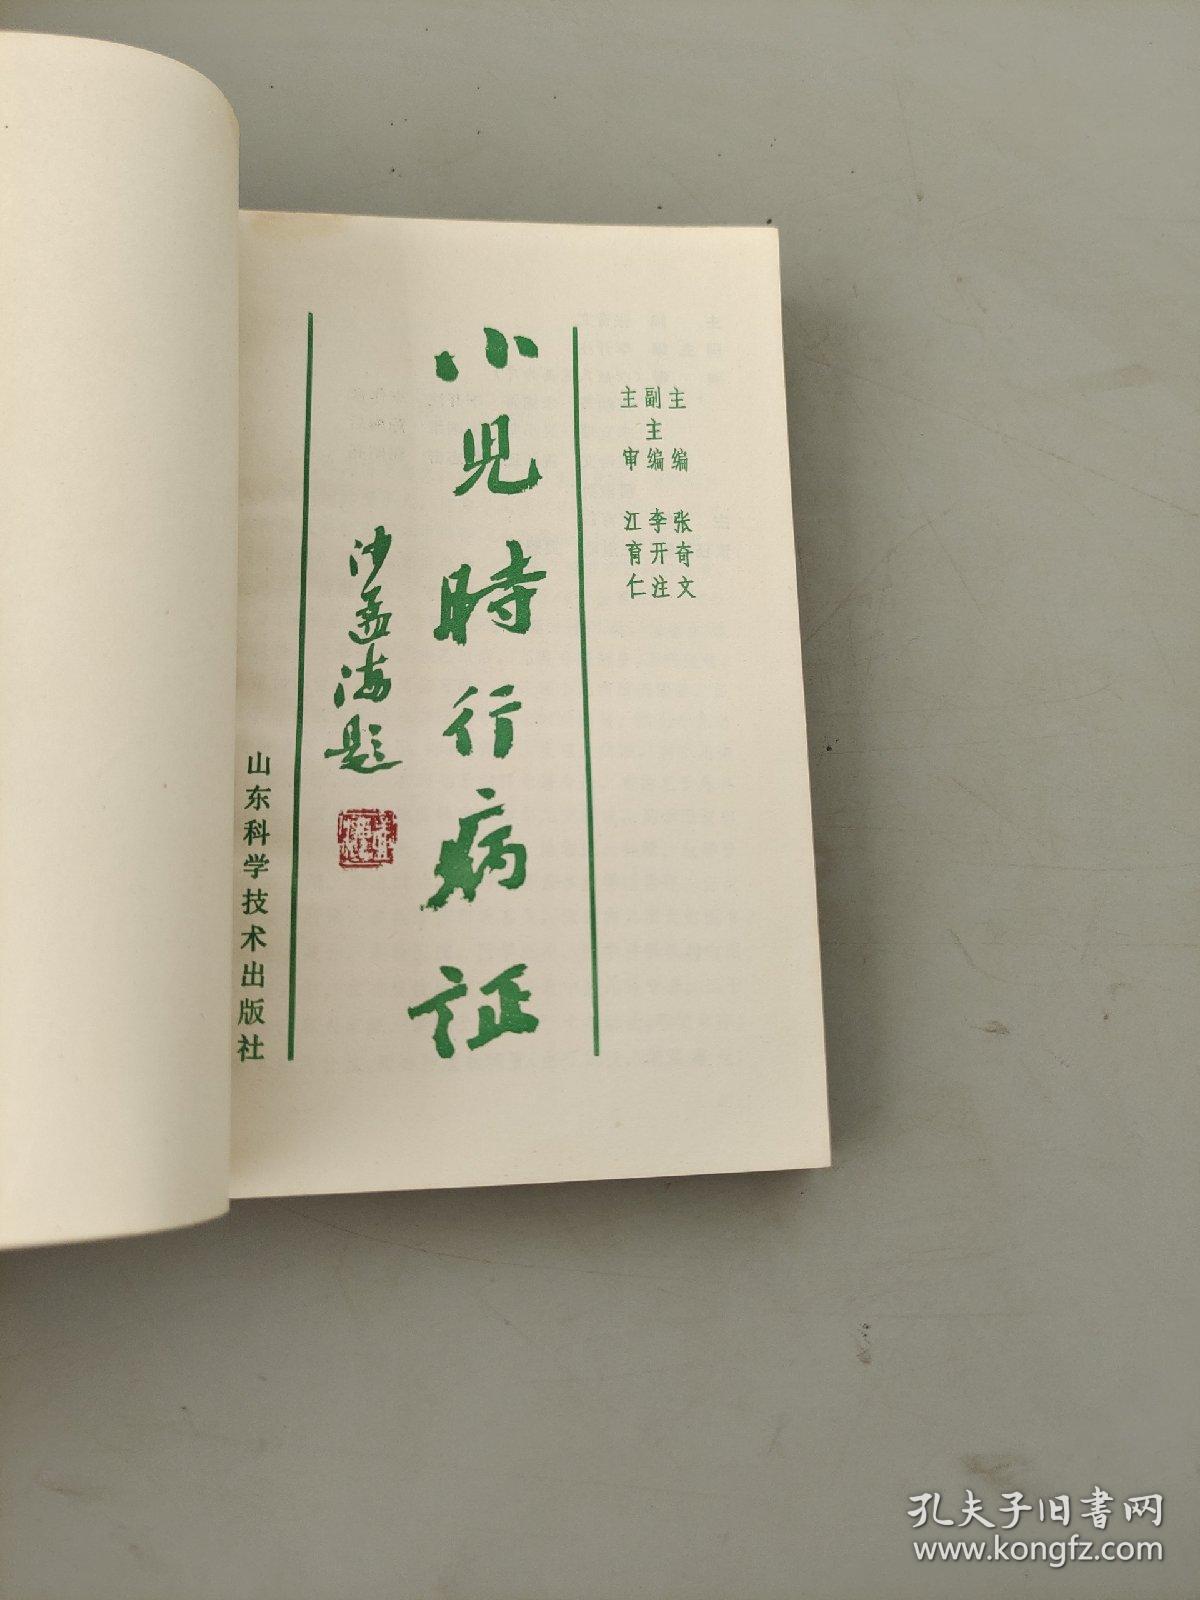 主编 张奇文
副主编 李开注
主审 江育仁
小児時行病证
沙孟海题
山东科学技术出版社
孔夫子旧书网
www.kongfz.com